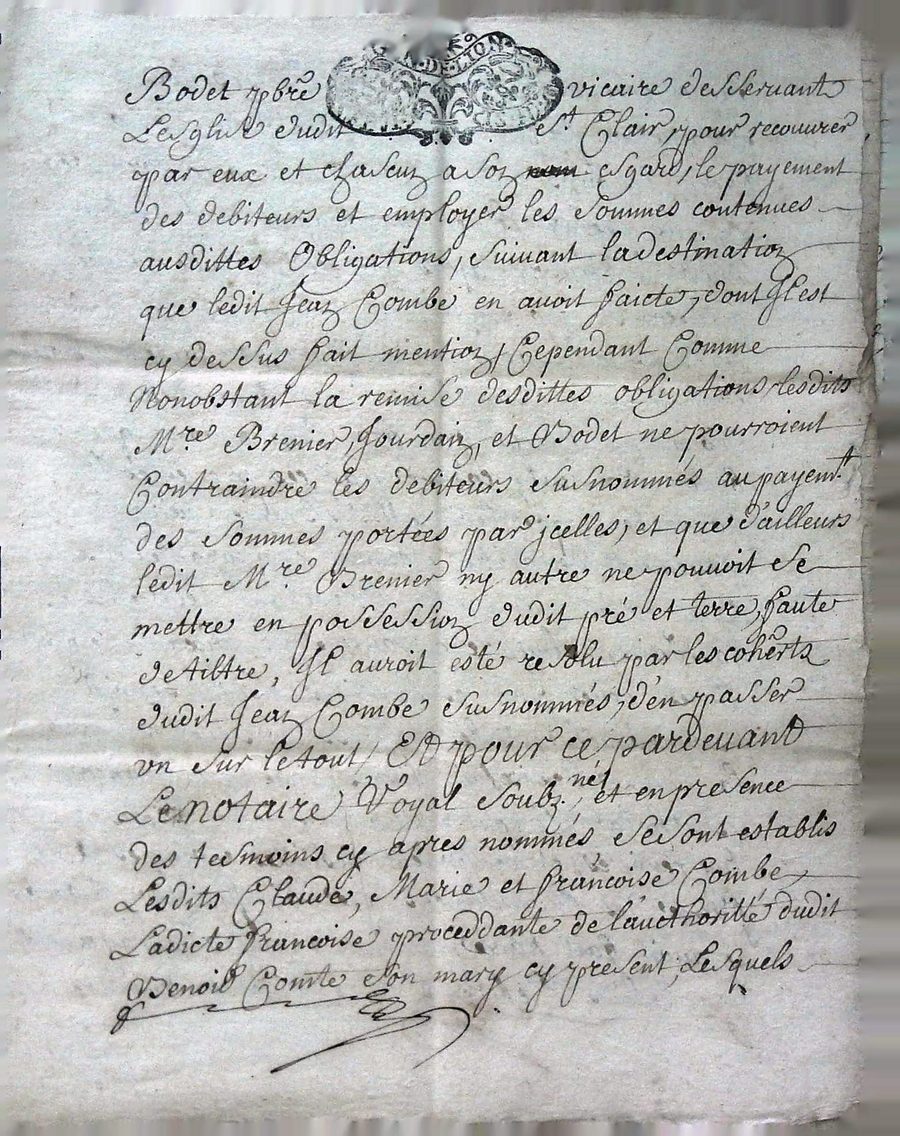 N. DE LION
Bodet pbre vicaire desservant
Lesglise dudit St Clair, pour recouurer
par eux et chascuz a soz esgard, le payement
des debiteurs et employer les sommes contenues
ausdittes Obligations, suivant la destinatioz
que ledit Jeaz Combe en auoit faicte, dont Jl est
cy dessus fait mentioz, Cependant Comme
Nonobstant la remise desdittes obligations, lesdits
Mre Brenier, Jourdaiz, et Bodet ne pourroient
Contraindre les debiteurs susnommés au payemtt
des sommes portées par jcelles, et que d'ailleurs
ledit Mre Brenier ny autre ne pouuoit se
mettre en possessioz dudit pré et terre, faute
de tiltre, Jl auroit esté resolu par les coherts
dudit Jeaz Combe susnommés, d'en passer
vn sur le tout, Et pour ce pardeuant
Le notaire Royal soubz.né, et en presence
des tesmoins cy apres nommés se sont establis
Lesdits Claude, Marie et françoise Combe,
Ladicte françoise proceddante de l'authoritté dudit
Benoit Comte son mary cy present, Lesquels